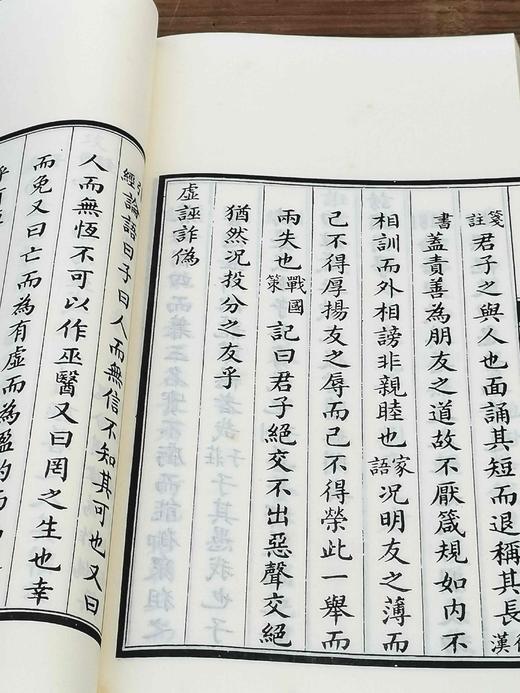 箋註君子之與人也面誦其短而退稱其長漢
書蓋責善為朋友之道故不厭箴規如內不
相訓而外相謗非親睦也家語況明友之薄而
己不得厚揚友之辱而己不得榮此一舉而
兩失也戰國策記曰君子絕交不出惡聲交絕
猶然況投分之友乎
虛誣詐偽
經論語曰子曰人而無信不知其可也又曰
人而無恆不可以作巫醫又曰罔之生也幸
而免又曰亡而為有虛而為盈約而